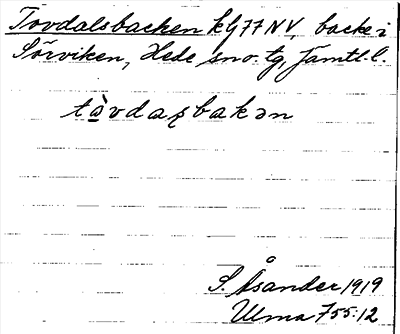 Tovdalsbacken kG77NV, backe i
Sörviken, Hede sn o. tg, Jämtl. l.
tòvdaꞎbakən
S. Åsander 1919
Ulma 755:12